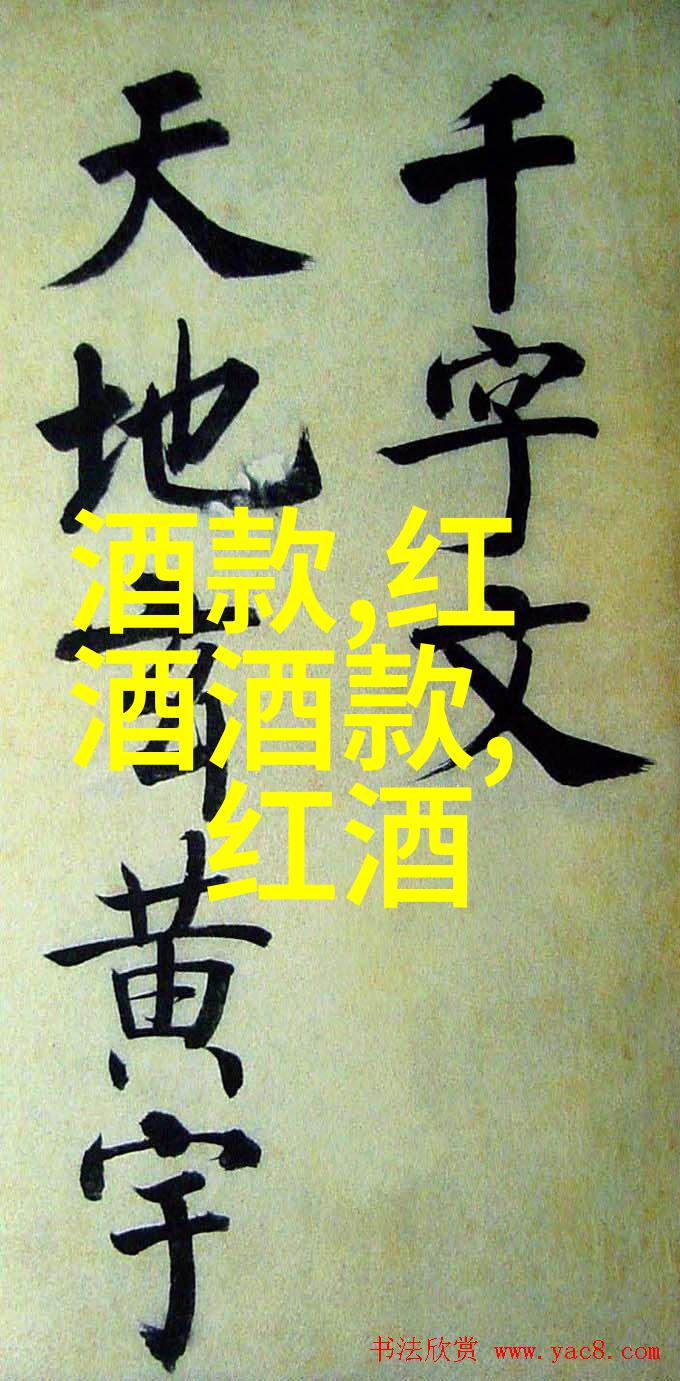 千字文
天地黄宇
酒款,红
酒酒款,
红酒
书法欣赏 www.yac8.com